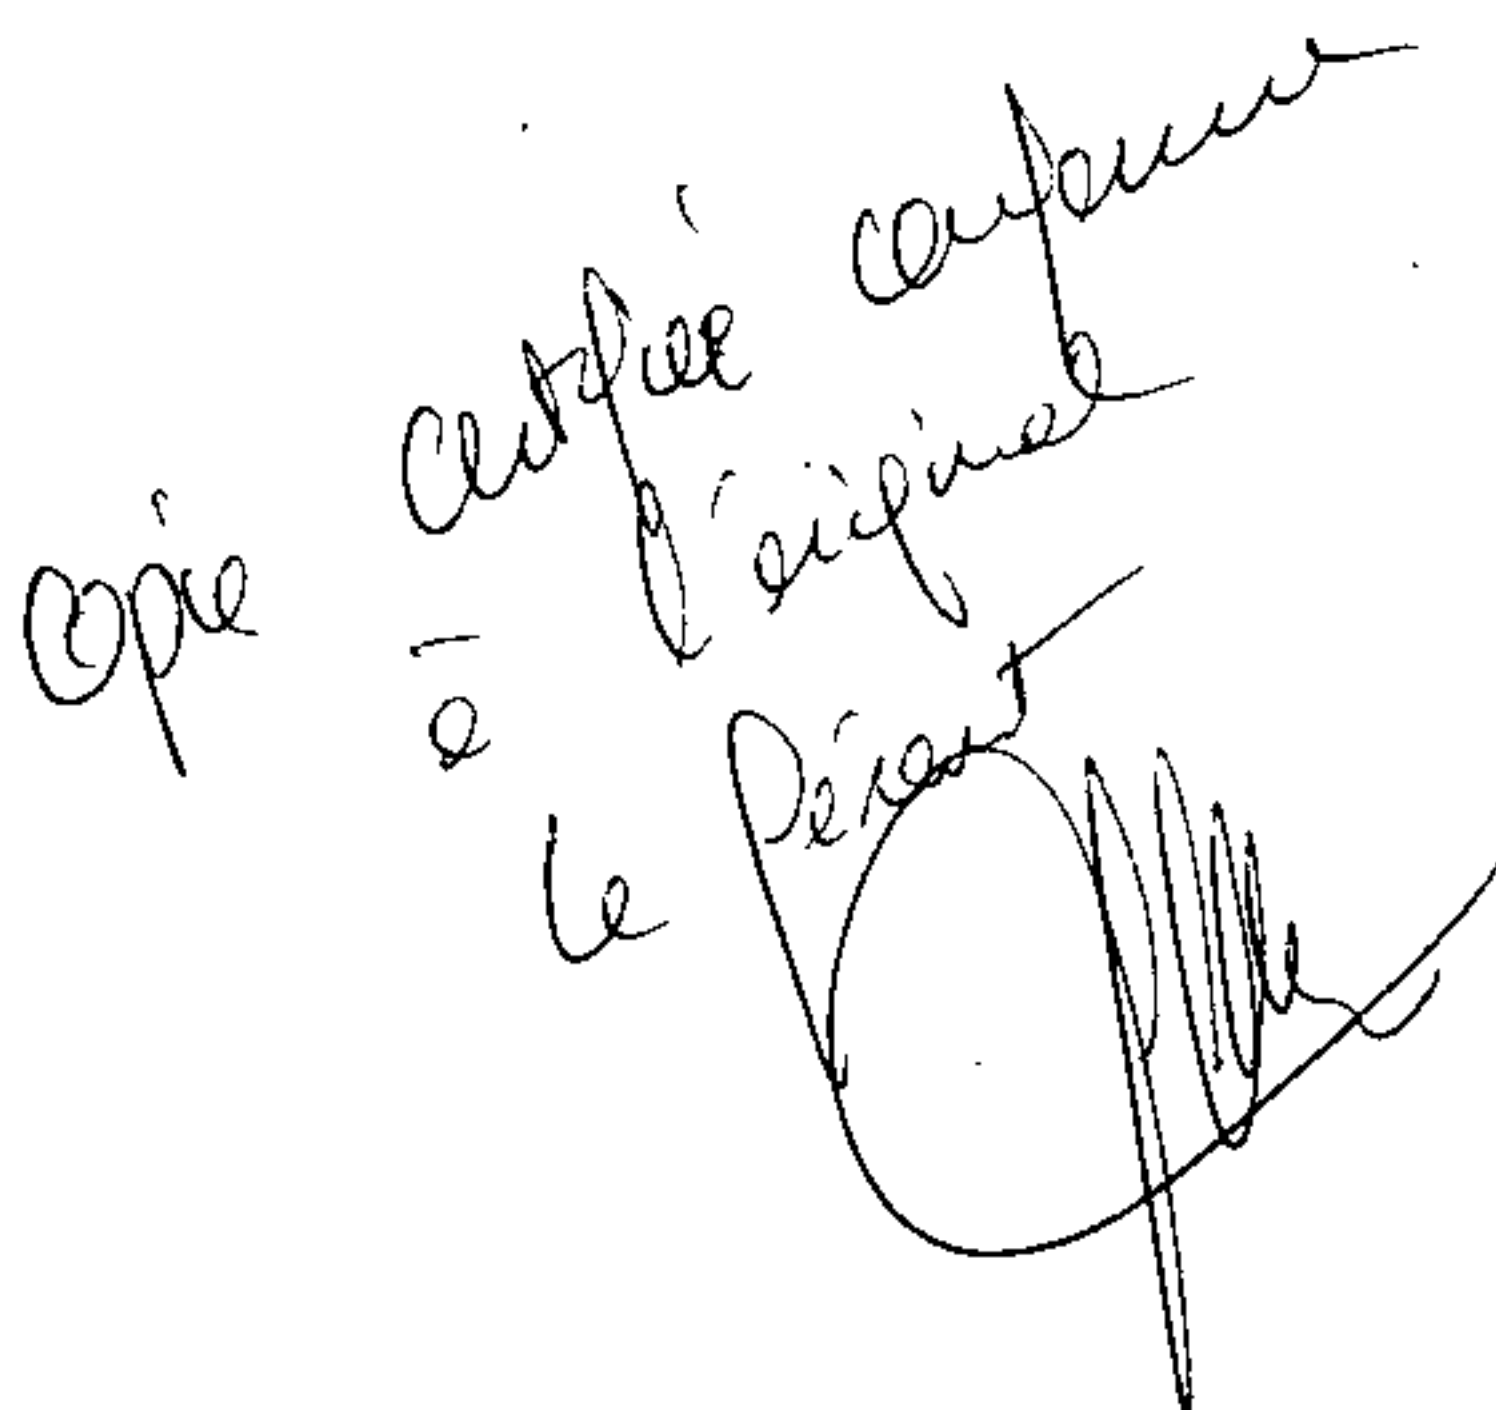 copie certifiée conforme
à l'original
le Gérant